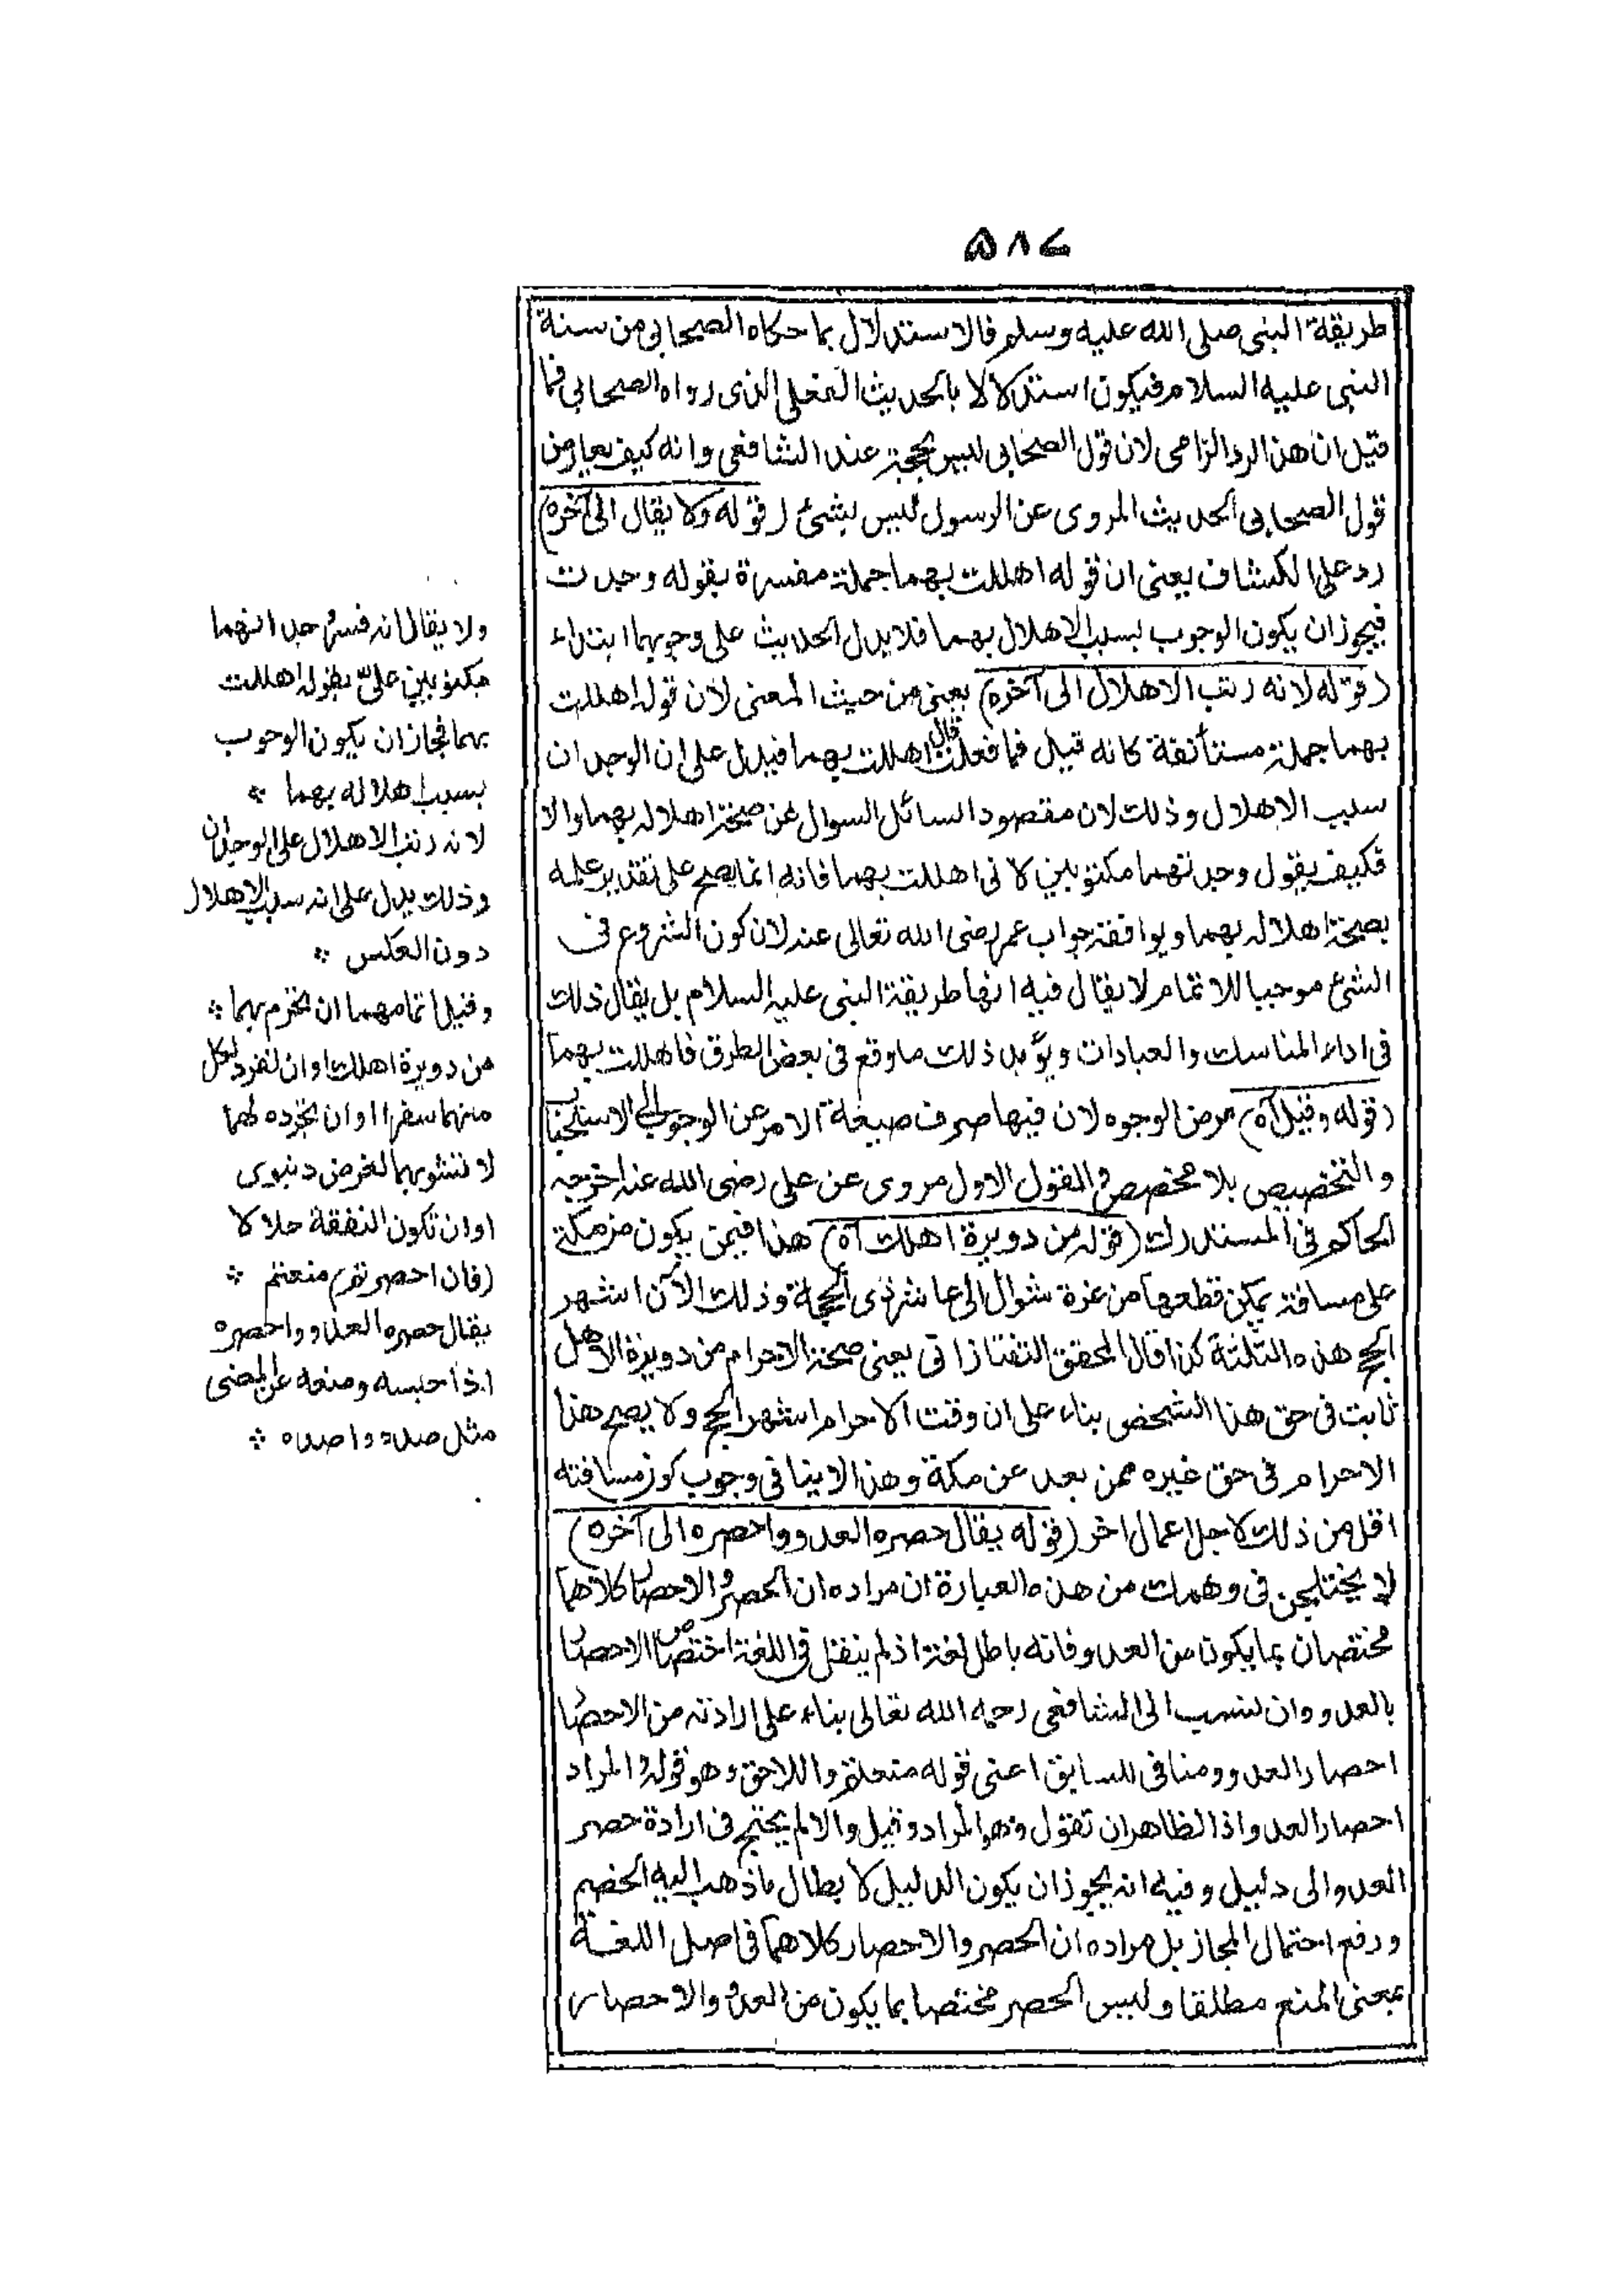 ۵۸۷
طريقة النبى صلى الله عليه وسلم فالاستدلال بما حكاه الصحابى من سنة
النبى عليه السلام فيكون استدلالا بالحديث الفعلى الذى رواه الصحابى فما
قيل ان هذا الرد الزامى لان قول الصحابى ليس بحجة عند الشافعى وانه كيف يعارض
قول الصحابى الحديث المروى عن الرسول ليس بشئ (قوله ولا يقال الى آخره)
رد على الكشاف يعنى ان قوله اهللت بهما جملة مفسرة بقوله وجدت
فيجوز ان يكون الوجوب بسبب الاهلال بهما فلا يدل الحديث على وجوبهما ابتداء
(قوله لانه رتب الاهلال الى آخره) يعنى من حيث المعنى لان قوله اهللت
بهما جملة مستأنفة كانه قيل فما فعلت قال اهللت بهما فيدل على ان الوجدان
سبب الاهلال وذلك لان مقصود السائل السوال عن صحة اهلاله بهما والا
فكيف يقول وجدتهما مكتوبين لانى اهللت بهما فانه انما يصح على تقدير علمه
بصحة اهلاله بهما ويوافقه جواب عمر رضى الله تعالى عنه لان كون الشروع فى
الشئ موجبا للاتمام لا يقال فيه انها طريقة النبى عليه السلام بل يقال ذلك
فى اداء المناسك والعبادات ويؤيد ذلك ما وقع فى بعض الطرق فاهللت بهما
(قوله وقيل آه) مرض الوجوه لان فيها صرف صيغة الامر عن الوجوب الى الاستحباب
والتخصيص بلا مخصص والقول الاول مروى عن على رضى الله عنه اخرجه
الحاكم فى المستدرك (قوله من دويرة اهلك آه) هذا فيمن يكون من مكة
على مسافة يمكن قطعها من غرة شوال الى عاشر ذى الحجة وذلك الآن اشهر
الحج هذه الثلثة كذا قال المحقق التفتازانى يعنى صحة الاحرام من دويرة الاهل
ثابت فى حق هذا الشخص بناء على ان وقت الاحرام اشهر الحج ولا يصح هذا
الاحرام فى حق غيره ممن بعد عن مكة وهذا لا ينافى وجوب كون مسافته
اقل من ذلك لاجل اعمال اخر (قوله يقال حصره العدو واحصره الى آخره)
لا يختلجن فى وهمك من هذه العبارة ان مراده ان الحصر والاحصار كلاهما
مختصان بما يكون من العدو فانه باطل لغة اذ لم ينقل فى اللغة اختصاص الاحصار
بالعدو وان نسب الى الشافعى رحمه الله تعالى بناء على ارادته من الاحصار
احصار العدو ومنافى للسابق اعنى قوله منعتم واللاحق وهو قوله والمراد
احصار العدو اذ الظاهر ان تقول وهو المراد وقيل والا لم يحتج فى ارادة حصر
العدو الى دليل وفيه انه يجوز ان يكون الدليل لابطال ما ذهب اليه الخصم
ودفع احتمال المجاز بل مراده ان الحصر والاحصار كلاهما فى اصل اللغة
بمعنى المنع مطلقا وليس الحصر مختصا بما يكون من العدو والاحصار
ولا يقال انه فسر وجد انهما
مكتوبين على بقوله اهللت
بهما فجاز ان يكون الوجوب
بسبب اهلاله بهما
لانه رتب الاهلال على الوجدان
وذلك يدل على انه سبب الاهلال
دون العكس
وقيل اتمامهما ان تحرم بهما
من دويرة اهلك او ان تفرد لكل
منهما سفرا او ان تجرده لهما
لا تشوبهما لغرض دنيوى
او ان تكون النفقة حلالا
(فان احصرتم) منعتم
يقال حصره العدو واحصره
اذا حبسه ومنعه عن المضى
مثل صده واصده